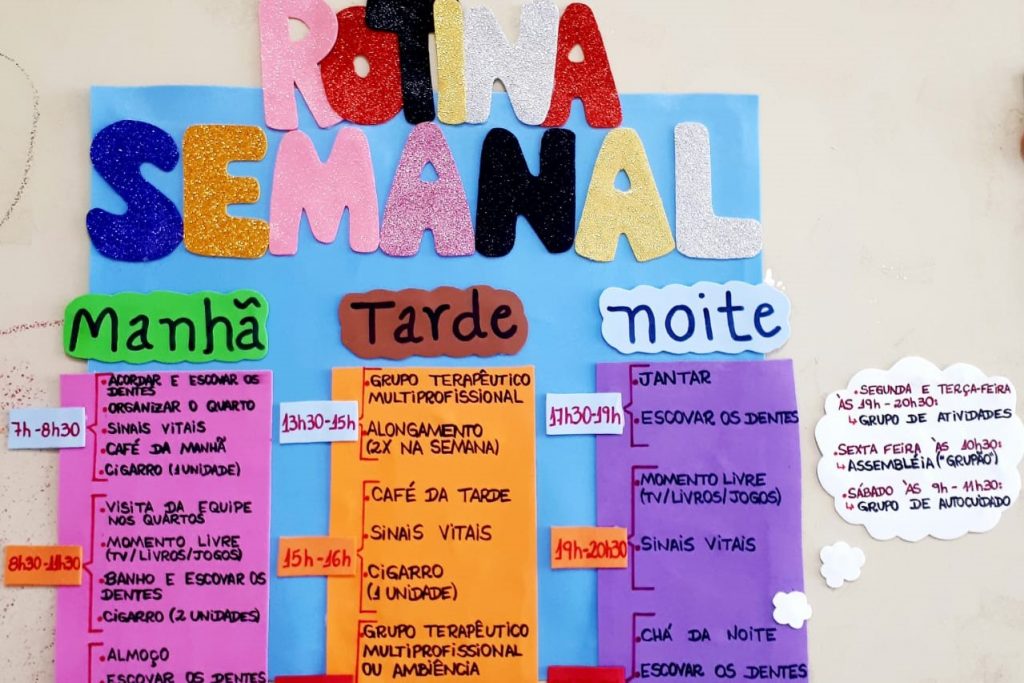 ROTINA
SEMANAL
Manhã
7h-8h30
• ACORDAR E ESCOVAR OS
DENTES
• ORGANIZAR O QUARTO
• SINAIS VITAIS
• CAFÉ DA MANHÃ
• CIGARRO (1 UNIDADE)
8h30-11h30
• VISITA DA EQUIPE
NOS QUARTOS
• MOMENTO LIVRE
(TV/LIVROS/JOGOS)
• BANHO E ESCOVAR OS
DENTES
• CIGARRO (2 UNIDADES)
• ALMOÇO
• ESCOVAR OS DENTES
Tarde
13h30-15h
• GRUPO TERAPÊUTICO
MULTIPROFISSIONAL
• ALONGAMENTO
(2X NA SEMANA)
15h-16h
• CAFÉ DA TARDE
• SINAIS VITAIS
• CIGARRO
(1 UNIDADE)
• GRUPO TERAPÊUTICO
MULTIPROFISSIONAL
OU AMBIÊNCIA
noite
17h30-19h
• JANTAR
• ESCOVAR OS DENTES
19h-20h30
• MOMENTO LIVRE
(TV/LIVROS/JOGOS)
• SINAIS VITAIS
• CHÁ DA NOITE
• ESCOVAR OS DENTES
• SEGUNDA E TERÇA-FEIRA
ÀS 19h-20h30:
↳ GRUPO DE ATIVIDADES
• SEXTA FEIRA ÀS 10h30:
↳ ASSEMBLÉIA ("GRUPÃO")
• SÁBADO ÀS 9h-11h30:
↳ GRUPO DE AUTOCUIDADO